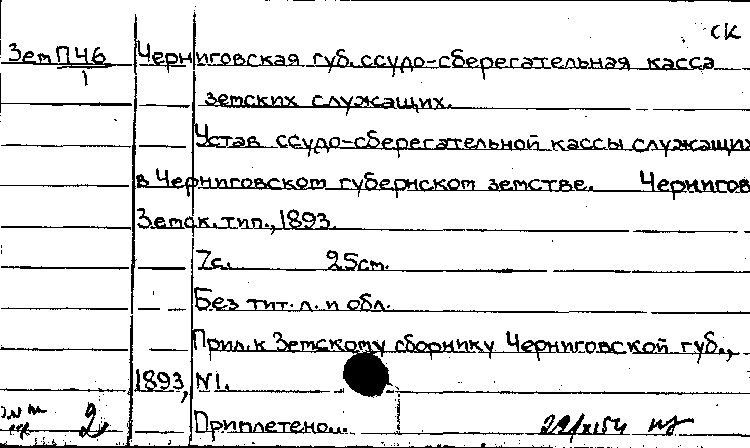 СК
ЗемП46 Черниговская губ.ссудо-сберегательная касса
1
земских служащих.
Устав ссудо-сберегательной кассы служащих
в Черниговском губернском земстве. Чернигов
Земск. тип., 1893.
7с. 25см.
Без тит. л. и обл.
Прил. к Земскому сборнику Черниговской губ.,
1893, №1.
2 Приплетено...